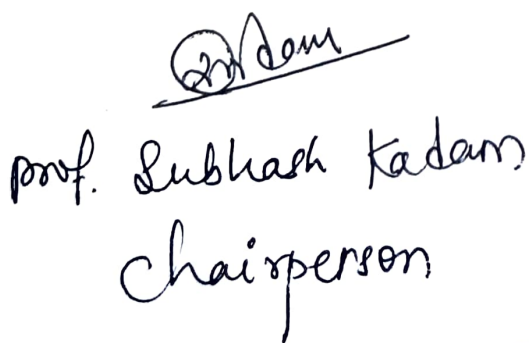 prof. Subhash Kadam
Chairperson